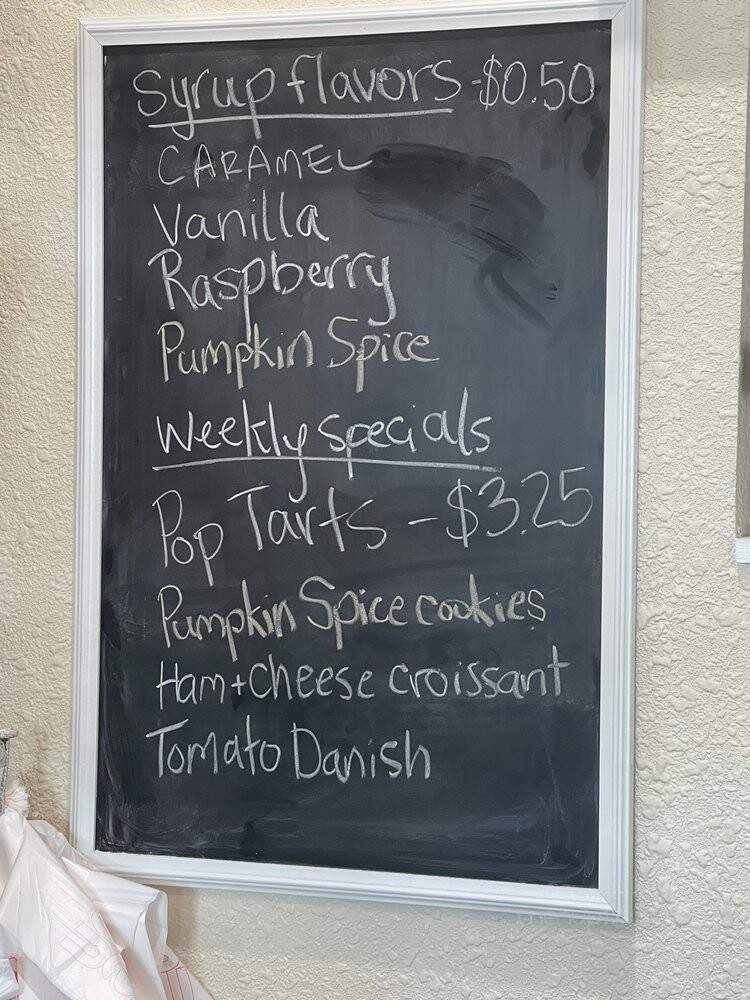 Syrup flavors - $0.50
CARAMEL
Vanilla
Raspberry
Pumpkin Spice
Weekly specials
Pop Tarts - $3.25
Pumpkin Spice cookies
Ham + Cheese croissant
Tomato Danish